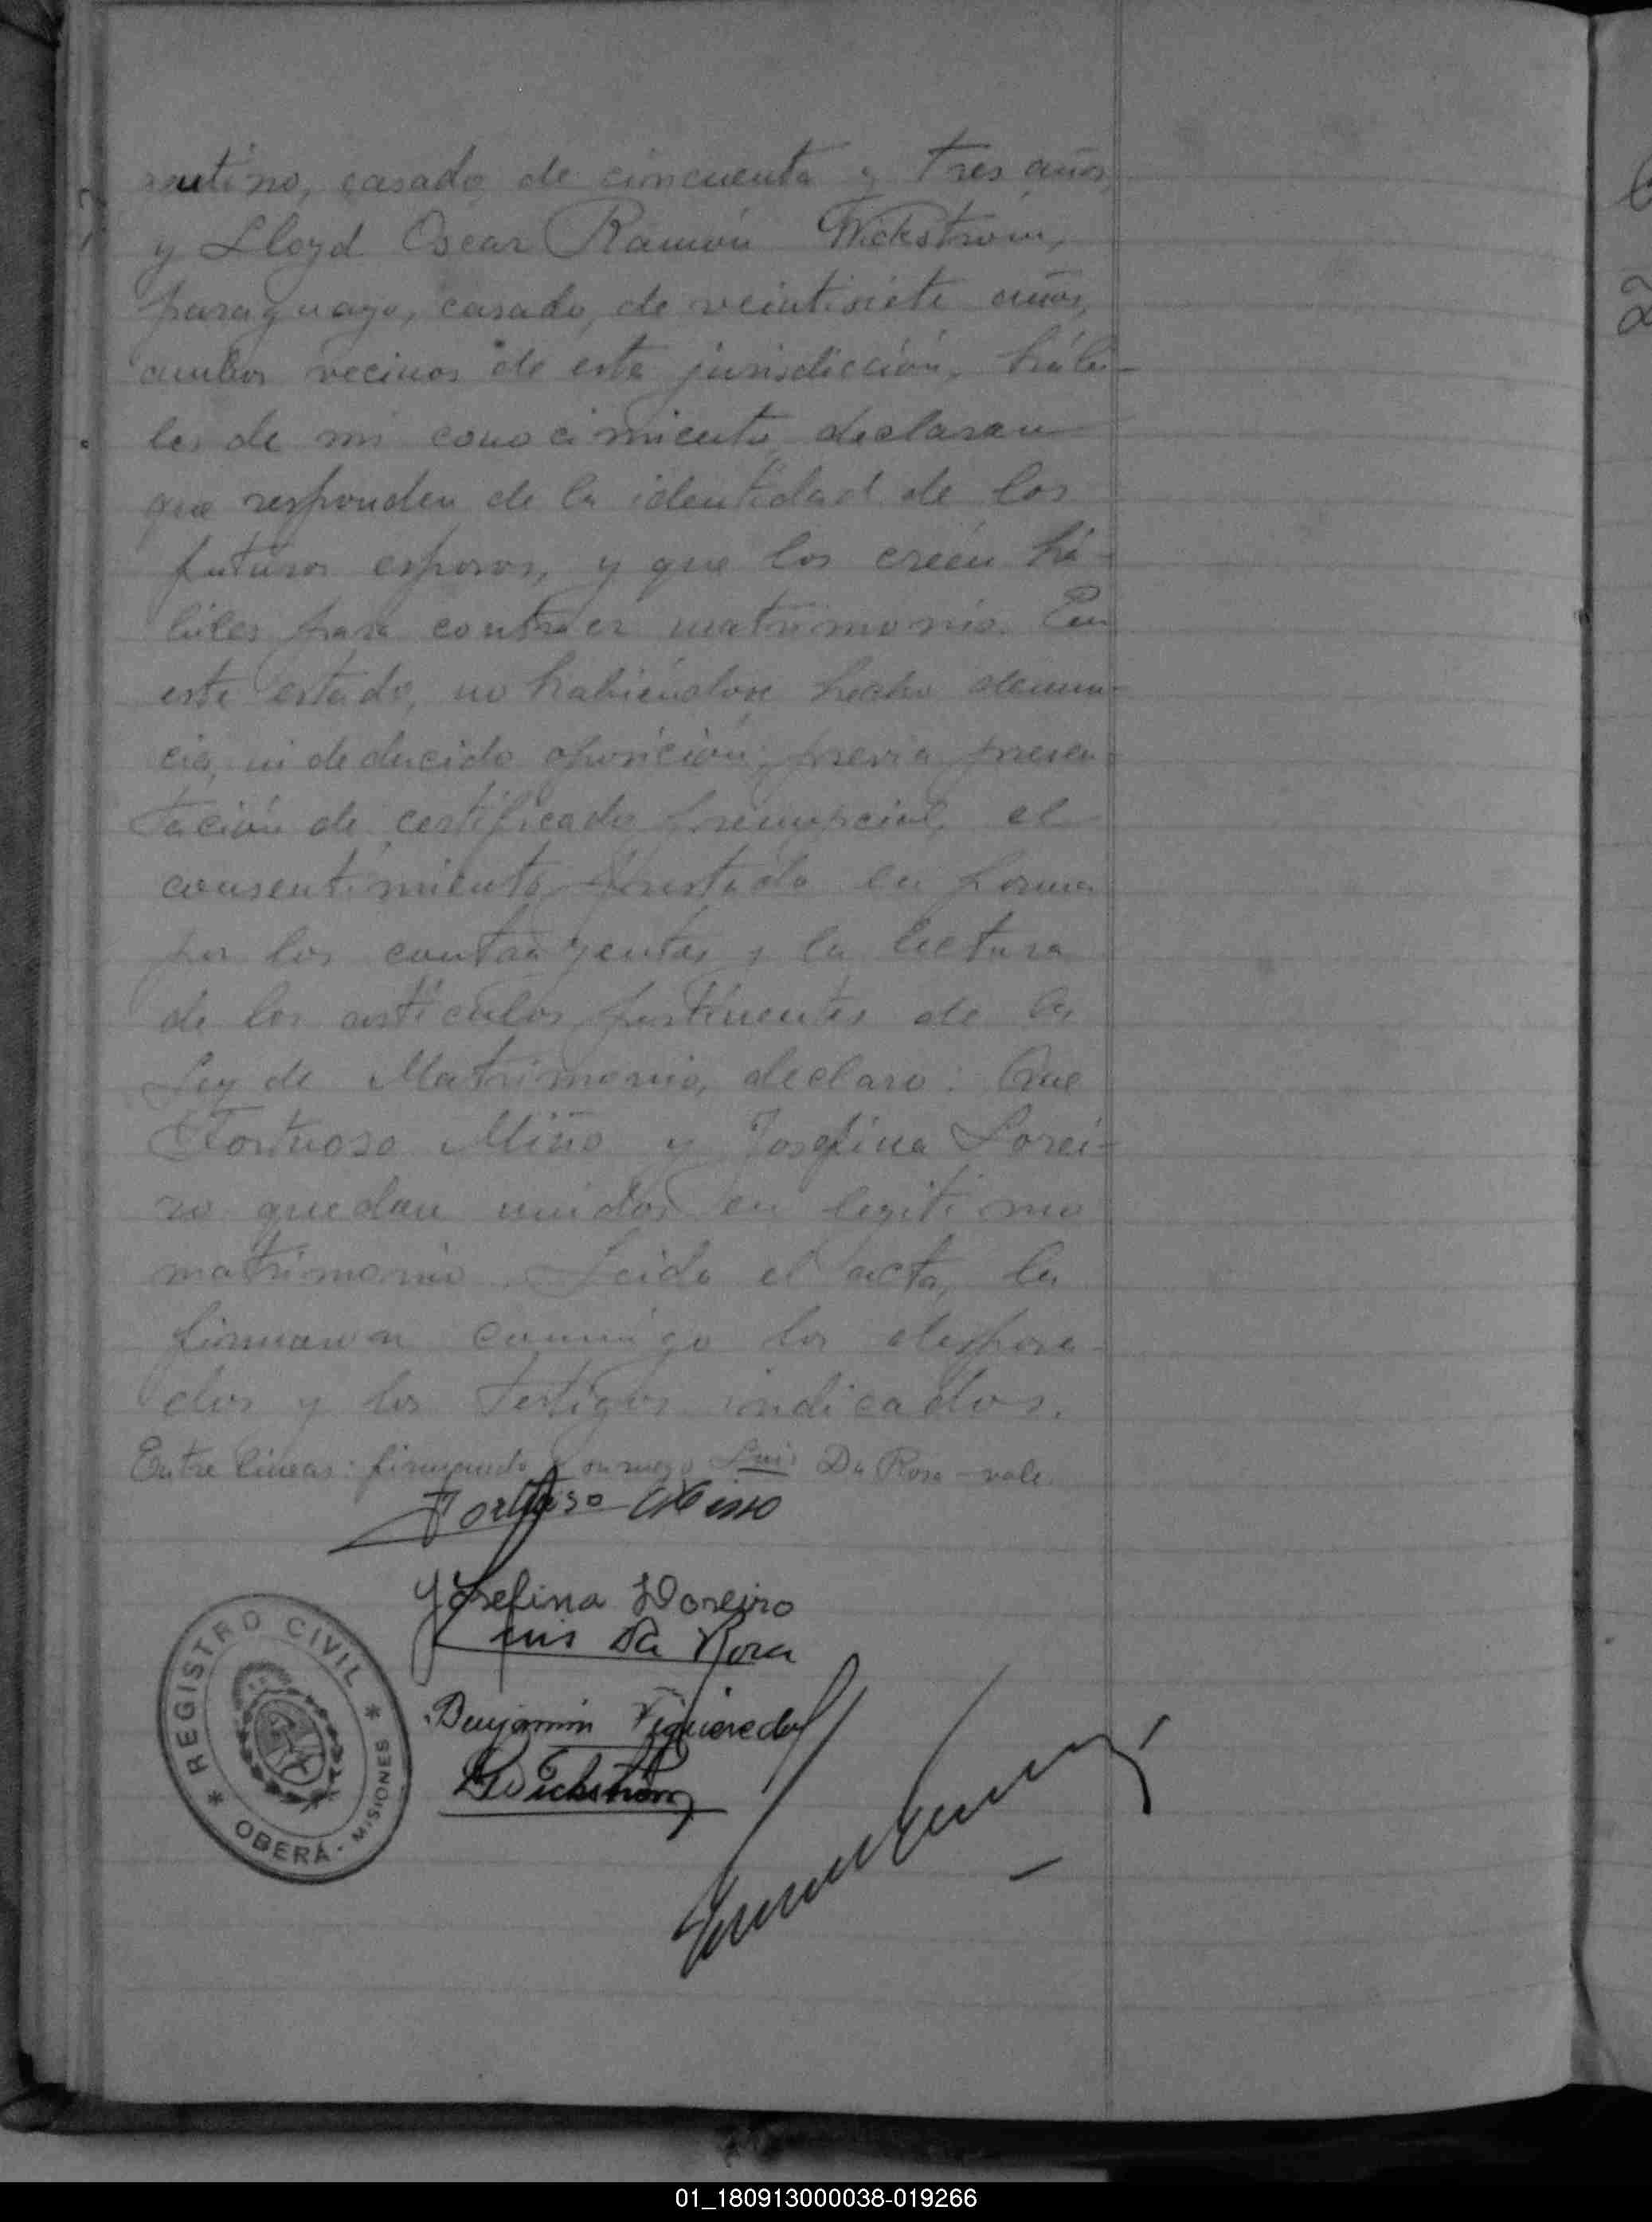 rentino, casado, de cincuenta y tres años,
y Lloyd Oscar Ramón Wickström,
paraguayo, casado, de veintisiete años,
ambos vecinos de esta jurisdicción, hábi-
les de mi conocimiento, declaran
que responden de la identidad de los
futuros esposos, y que los creen há-
biles para contraer matrimonio. En
este estado, no habiéndose hecho denun-
cia, ni deducido oposición, previa presen-
tación de certificado prenupcial, el
consentimiento prestado en forma
por los contrayentes y la lectura
de los artículos pertinentes de la
Ley de Matrimonio, declaro: Que
Fortuoso Miño y Josefina Lorei-
ro quedan unidos en legitimo
matrimonio. Leida el acta, la
firmaron conmigo los desposa-
dos y los testigos indicados.
Entre lineas: firmando a su ruego Luis Da Rosa - vale.
Fortuoso Miño
Josefina Loreiro
Luis Da Rosa
Benjamin Figueredo
LWickström
* REGISTRO CIVIL *
OBERÁ - MISIONES
01_180913000038-019266